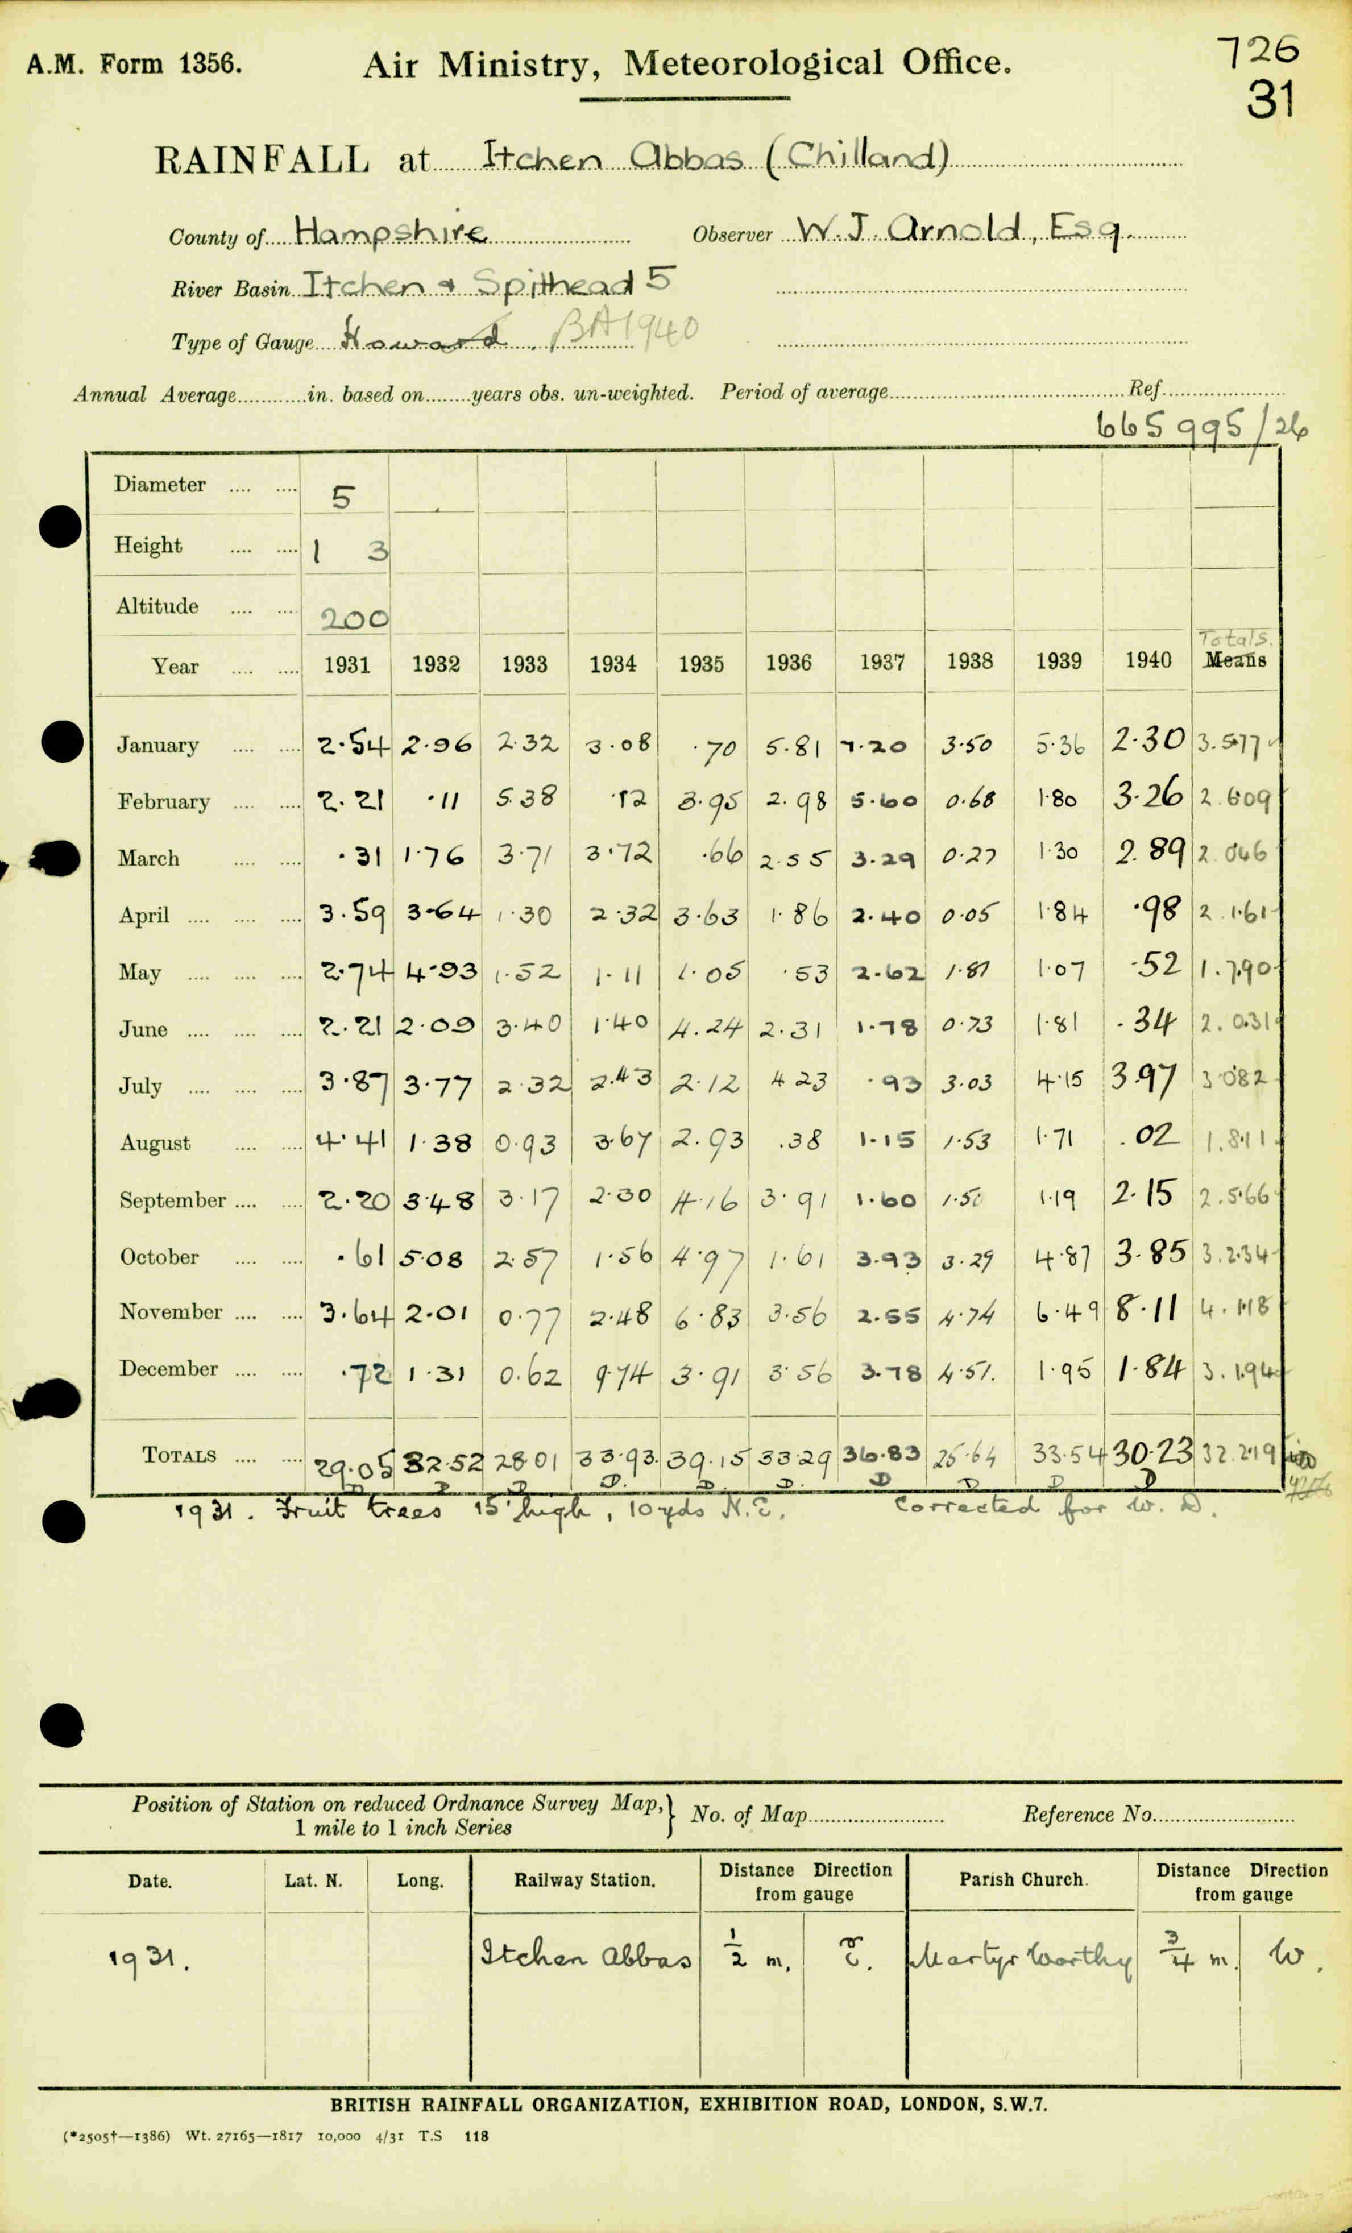 A.M. Form 1356. Air Ministry, Meteorological Office. 726
31
RAINFALL at Itchen Abbas (Chilland)
County of Hampshire Observer W. J. Arnold, Esq.
River Basin Itchen & Spithead 5
Type of Gauge Howard BA1940
Annual Average in. based on years obs. un-weighted. Period of average Ref.
665 995/26
Diameter 5
Height 1 3
Altitude 200
Totals.
Year 1931 1932 1933 1934 1935 1936 1937 1938 1939 1940 Means
January 2.54 2.96 2.32 3.08 .70 5.81 7.20 3.50 5.36 2.30 3.577
February 2.21 .11 5.38 .12 3.95 2.98 5.60 0.68 1.80 3.26 2.609
March .31 1.76 3.71 3.72 .66 2.55 3.29 0.27 1.30 2.89 2.046
April 3.59 3.64 1.30 2.32 3.63 1.86 2.40 0.05 1.84 .98 2.161
May 2.74 4.93 1.52 1.11 1.05 .53 2.62 1.81 1.07 .52 1.790
June 2.21 2.09 3.40 1.40 4.24 2.31 1.78 0.73 1.81 .34 2.031
July 3.87 3.77 2.32 2.43 2.12 4.23 .93 3.03 4.15 3.97 3.082
August 4.41 1.38 0.93 3.67 2.93 .38 1.15 1.53 1.71 .02 1.811
September 2.20 3.48 3.17 2.30 4.16 3.91 1.60 1.50 1.19 2.15 2.566
October .61 5.08 2.57 1.56 4.97 1.61 3.93 3.29 4.87 3.85 3.234
November 3.64 2.01 0.77 2.48 6.83 3.56 2.55 4.74 6.49 8.11 4.118
December .72 1.31 0.62 9.74 3.91 3.56 3.78 4.51 1.95 1.84 3.194
TOTALS 29.05 32.52 28.01 33.93 39.15 33.29 36.83 25.64 33.54 30.23 32.219
D D D D. D. D. D D D D
1931. Fruit trees 15' high, 10 yds N.E. Corrected for W. D.
Position of Station on reduced Ordnance Survey Map, } No. of Map Reference No.
1 mile to 1 inch Series
Date. Lat. N. Long. Railway Station. Distance Direction from gauge Parish Church. Distance Direction from gauge
1931. Itchen Abbas ½ m. E. Martyr Worthy ¾ m. W.
BRITISH RAINFALL ORGANIZATION, EXHIBITION ROAD, LONDON, S.W.7.
(*2505†—1386) Wt. 27165—1817 10,000 4/31 T.S 118